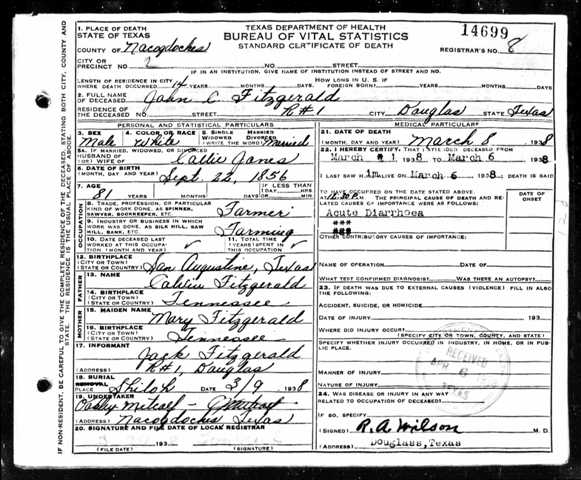 TEXAS DEPARTMENT OF HEALTH
BUREAU OF VITAL STATISTICS
STANDARD CERTIFICATE OF DEATH
14699
REGISTRAR'S NO. 8
1. PLACE OF DEATH
STATE OF TEXAS
COUNTY OF Nacogdoches
CITY OR
PRECINCT NO. 2 NO. STREET
IF IN AN INSTITUTION, GIVE NAME OF INSTITUTION INSTEAD OF STREET AND NO.
LENGTH OF RESIDENCE IN CITY
WHERE DEATH OCCURRED 14 YEARS MONTHS DAYS
HOW LONG IN U. S. IF
FOREIGN BORN? YEARS MONTHS DAYS
2. FULL NAME
OF DECEASED John C. Fitzgerald
RESIDENCE OF
THE DECEASED NO. STREET R#1 CITY Douglas STATE Texas
PERSONAL AND STATISTICAL PARTICULARS
3. SEX Male
4. COLOR OR RACE White
5. SINGLE MARRIED
WIDOWED DIVORCED
(WRITE THE WORD) Married
5A. IF MARRIED, WIDOWED, OR DIVORCED
HUSBAND OF
(OR) WIFE OF Callie Jones
6. DATE OF BIRTH
(MONTH, DAY AND YEAR) Sept. 22, 1856
7. AGE
81 YEARS MONTHS DAYS
IF LESS THAN
1 DAY,
HRS. MIN.
OCCUPATION
8. TRADE, PROFESSION, OR PARTICULAR
KIND OF WORK DONE, AS SPINNER,
SAWYER, BOOKKEEPER, ETC. Farmer
9. INDUSTRY OR BUSINESS IN WHICH
WORK WAS DONE, AS SILK MILL, SAW
MILL, BANK, ETC. Farming
10. DATE DECEASED LAST
WORKED AT THIS OCCUPA-
TION (MONTH AND YEAR)
11. TOTAL TIME
(YEARS) SPENT IN
THIS OCCUPATION
12. BIRTHPLACE
(CITY OR TOWN)
(STATE OR COUNTRY) San Augustine, Texas
FATHER
13. NAME Fitzgerald
14. BIRTHPLACE
(CITY OR TOWN)
(STATE OR COUNTRY) Tennessee
MOTHER
15. MAIDEN NAME Mary Fitzgerald
16. BIRTHPLACE
(CITY OR TOWN)
(STATE OR COUNTRY) Tennessee
17. INFORMANT
Jack Fitzgerald
(ADDRESS) R#1, Douglas
18. BURIAL
REMOVAL
PLACE Shiloh DATE 3/9 1938
19. UNDERTAKER
Oakley Metcalf
(ADDRESS) Nacogdoches Texas
20. SIGNATURE AND FILE DATE OF LOCAL REGISTRAR
193
(FILE DATE) (SIGNATURE)
MEDICAL PARTICULARS
21. DATE OF DEATH
(MONTH, DAY AND YEAR) March 8 1938
22. I HEREBY CERTIFY, THAT I ATTENDED DECEASED FROM
March 1 1938 TO March 6 1938
I LAST SAW Him ALIVE March 6 1938 DEATH IS SAID
TO HAVE OCCURRED ON THE DATE STATED ABOVE AT
THE PRINCIPAL CAUSE OF DEATH AND RE-
LATED CAUSES OF IMPORTANCE WERE AS FOLLOWS:
DATE OF
ONSET
Acute Diarrhoea
OTHER CONTRIBUTORY CAUSES OF IMPORTANCE:
NAME OF OPERATION DATE OF
WHAT TEST CONFIRMED DIAGNOSIS? WAS THERE AN AUTOPSY?
23. IF DEATH WAS DUE TO EXTERNAL CAUSES (VIOLENCE) FILL IN ALSO
THE FOLLOWING:
ACCIDENT, SUICIDE, OR HOMICIDE
DATE OF INJURY 193
WHERE DID INJURY OCCUR?
(SPECIFY CITY OR TOWN, COUNTY, AND STATE)
SPECIFY WHETHER INJURY OCCURRED IN INDUSTRY, IN HOME, OR IN PUB-
LIC PLACE.
MANNER OF INJURY
NATURE OF INJURY
RECEIVED
APR 6
TEXAS
24. WAS DISEASE OR INJURY IN ANY WAY
RELATED TO OCCUPATION OF DECEASED?
IF SO, SPECIFY
(SIGNED) R. A. Wilson M. D.
(ADDRESS) Douglass, Texas